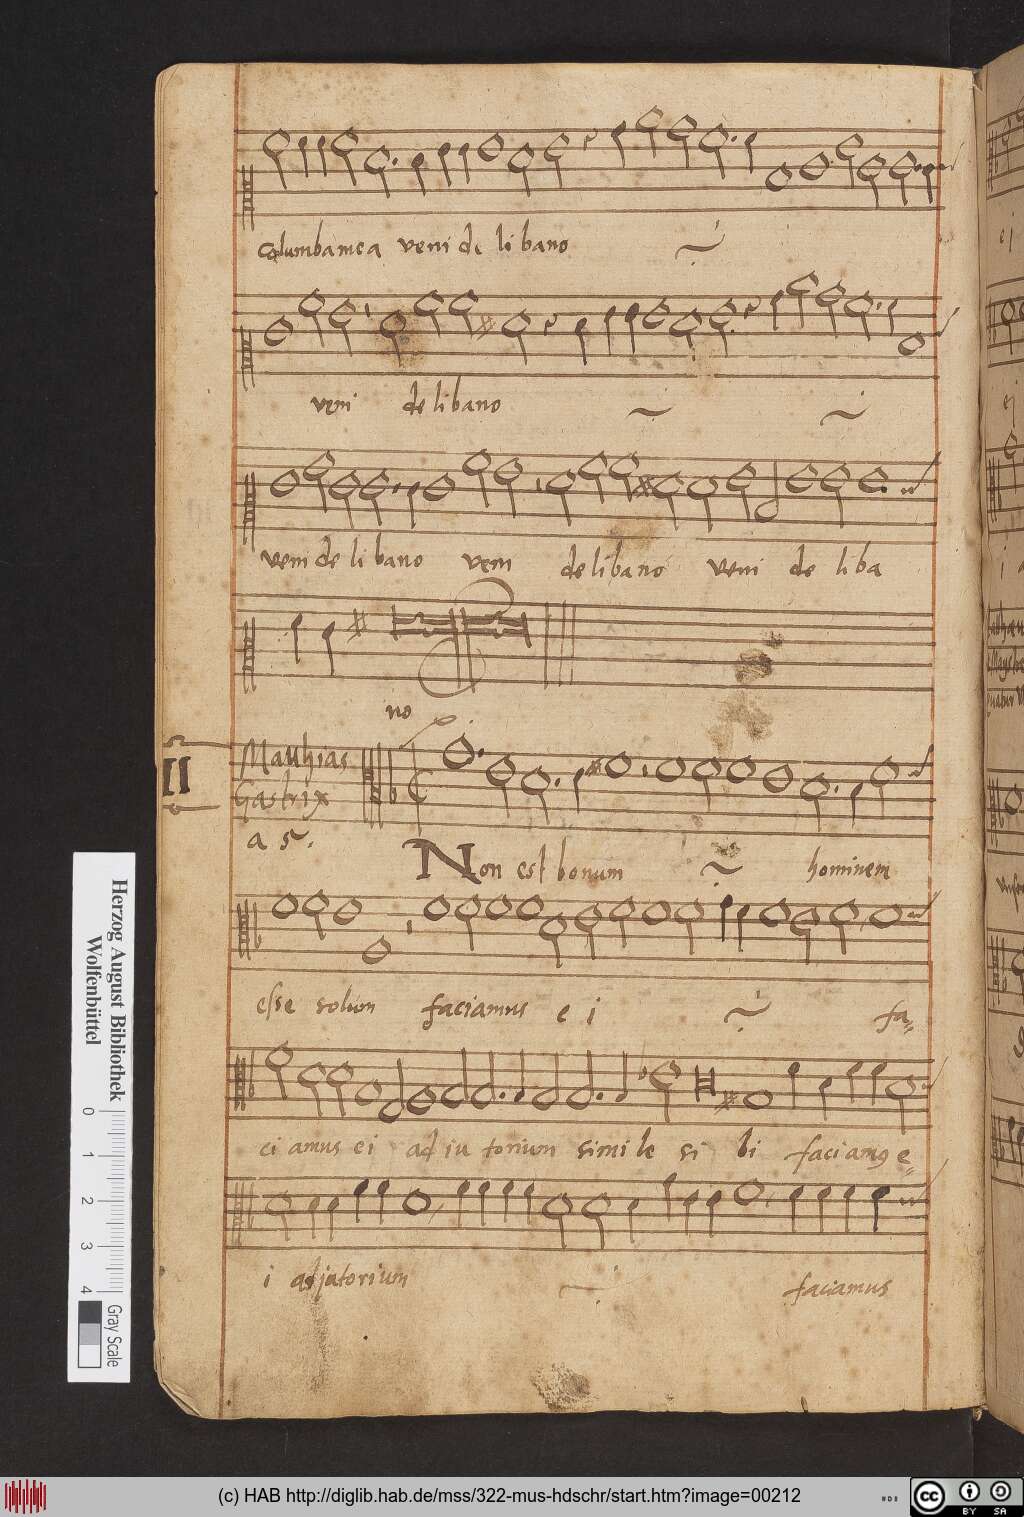 columba mea veni de libano
veni de libano
veni de libano veni de libano veni de liba
no
II
Matthias
Gastrix
a 5.
Non est bonum hominem
esse solum faciamus e i fa=
ci amus ei ad iu torium simi le si bi faciamus e=
i adjutorium faciamus
Herzog August Bibliothek
Wolfenbüttel
0 1 2 3 4
Gray Scale
(c) HAB http://diglib.hab.de/mss/322-mus-hdschr/start.htm?image=00212
cc BY SA